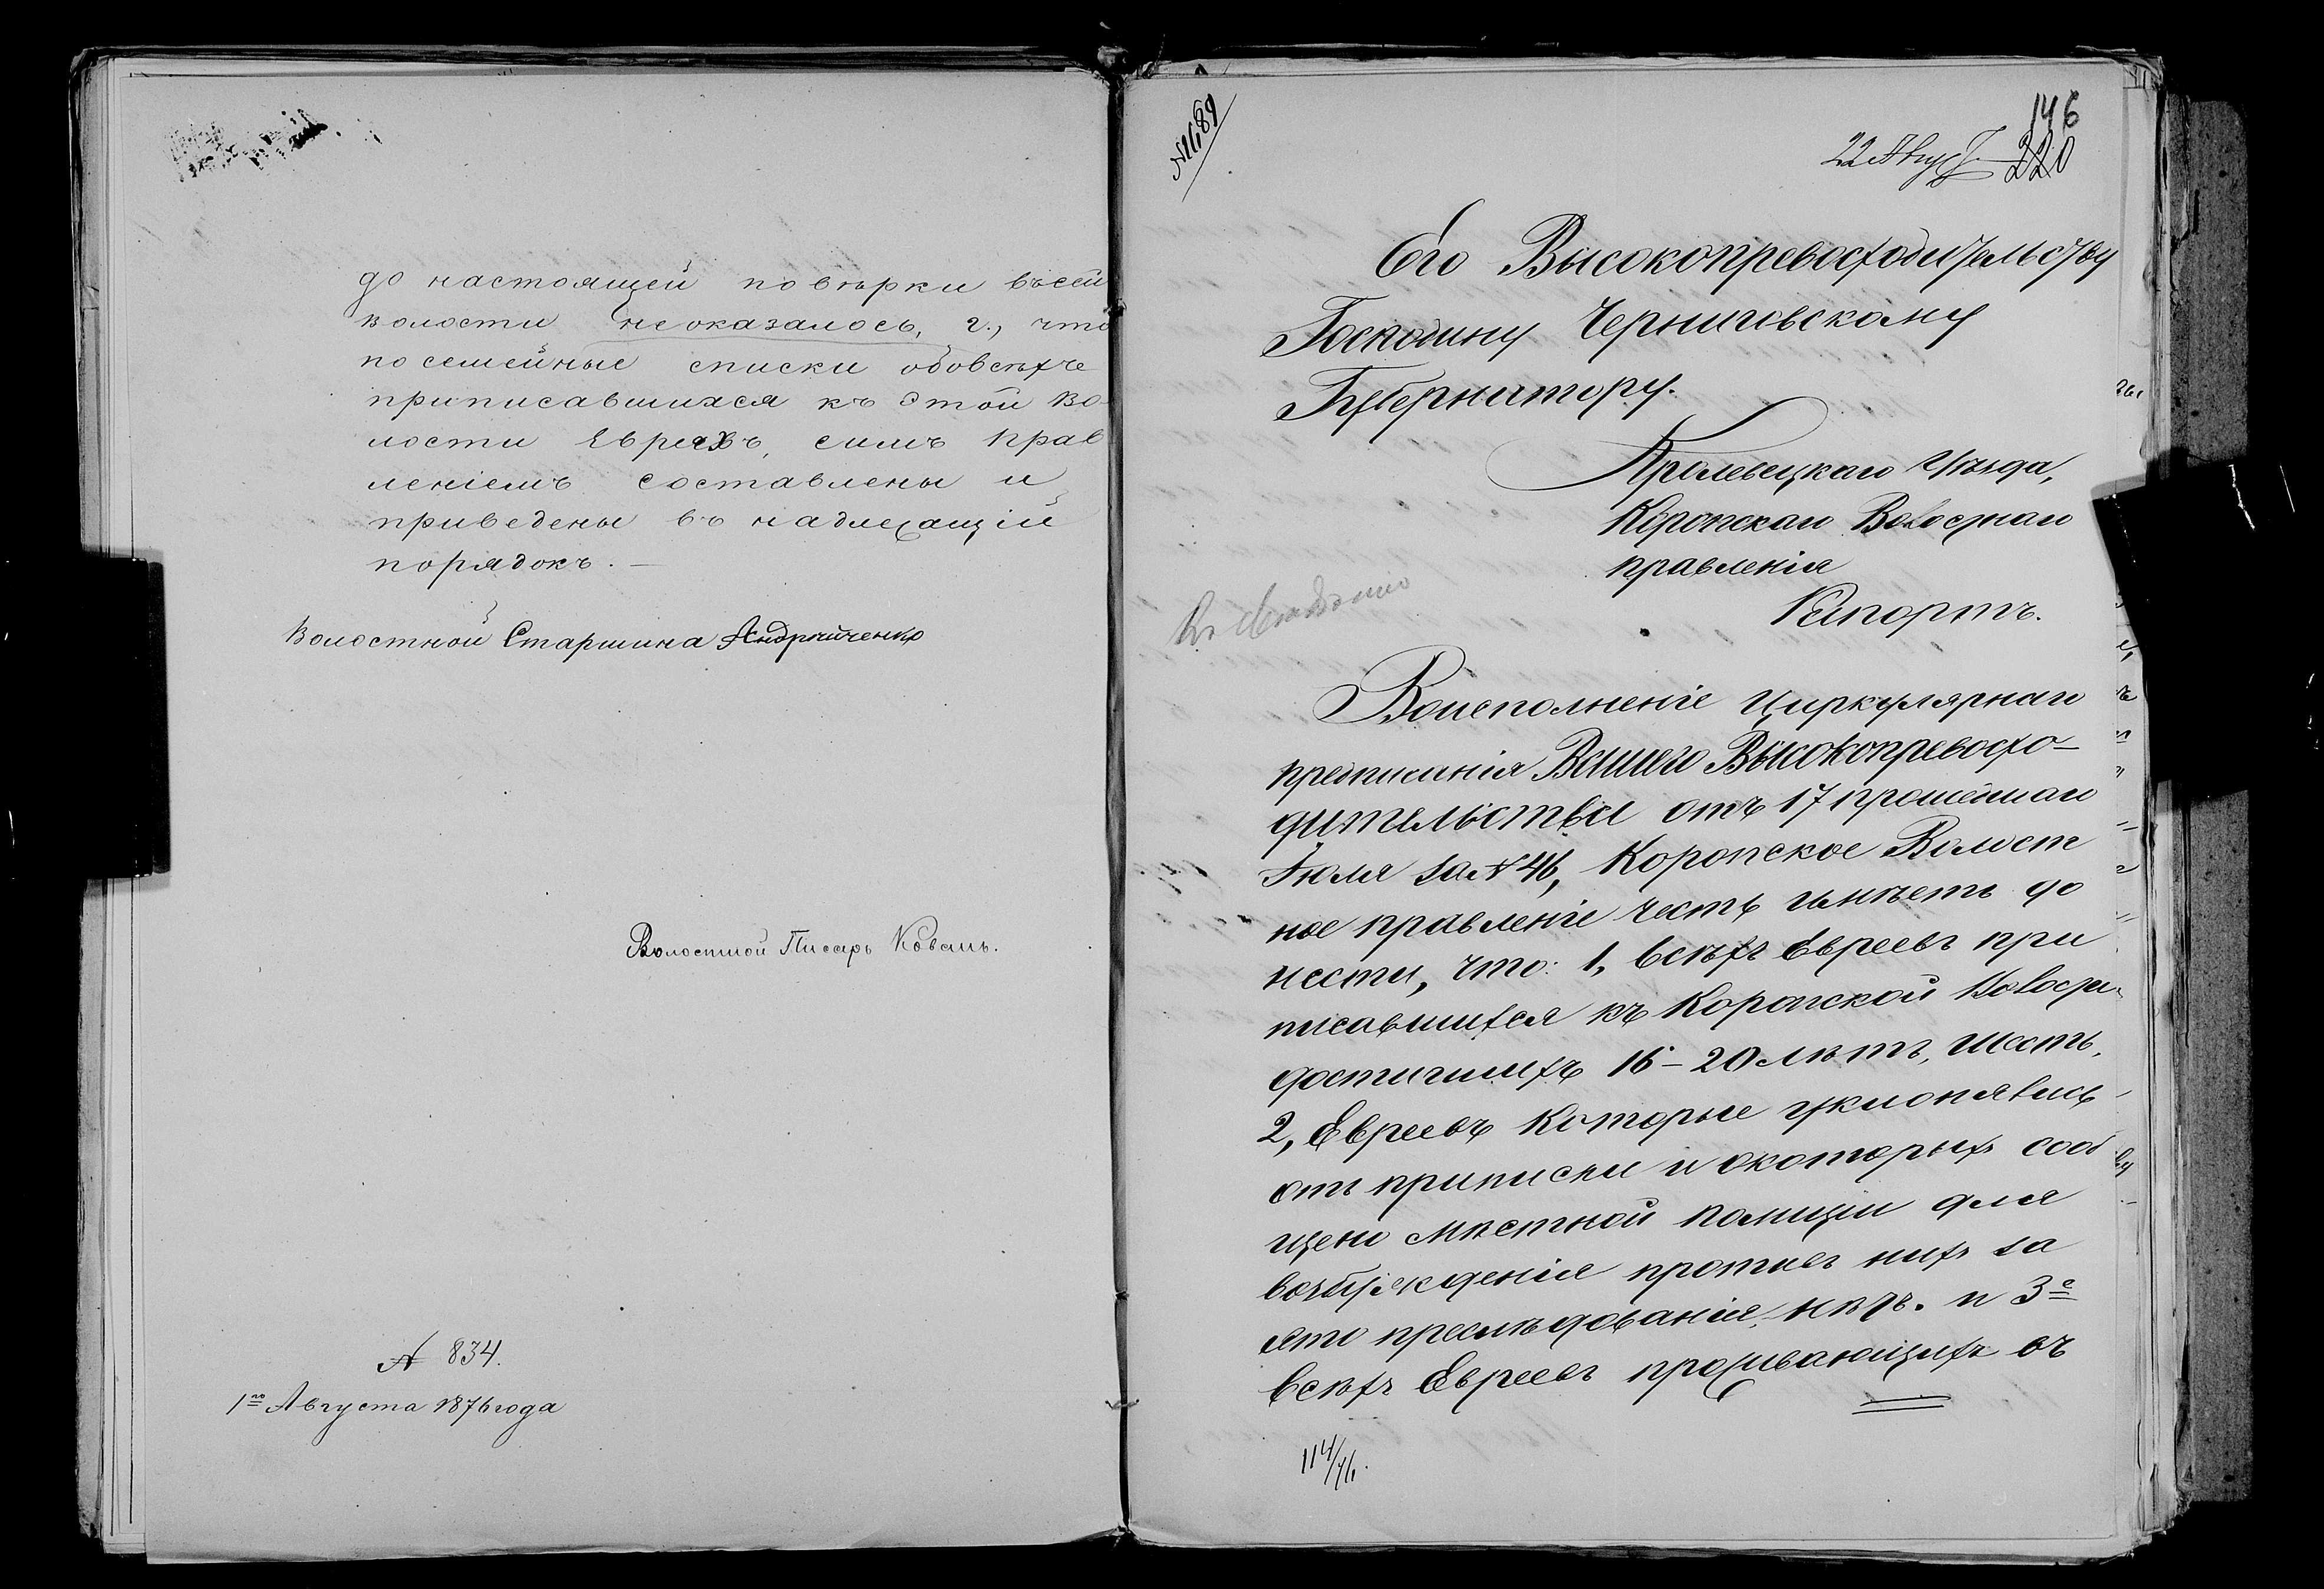 до настоящей повѣрки въсей
волости неоказалось, г., что
посемейные списки обовсѣхъ
приписавшихся къ этой во-
лости Евреяхъ, симъ прав
леніемъ составлены и
приведены въ надлежащій
порядокъ. —
Волостной Старшина Андрѣйченко
Волостной Писарь Коваль.
№ 834.
1го Августа 1876 года
146
22 Авгус 220
Его Высокопревосходительству
Господину Черниговскому
Губернатору.
Кролевецкаго Уѣзда,
Коропскаго Волостнаго
правленія
Рапортъ.
Воисполненіе Циркулярнаго
предписанія Вашего Высокопревосхо-
дительства отъ 17 прошедшаго
Іюля за № 46, Коропское Волост
ное правленіе честь имѣетъ до
нести, что: 1, всѣхъ Евреевъ при
писавшихся къ Коропской Волости
достигшихъ 16-20 лѣтъ, шесть,
2, Евреевъ которые уклонялись
отъ приписки и окоторыхъ сооб
щено мѣстной полиціи для
возбужденія противъ нихъ за
это преслѣдованія, нѣтъ. и 3е
всѣхъ Евреевъ проживающихъ въ
114/76.